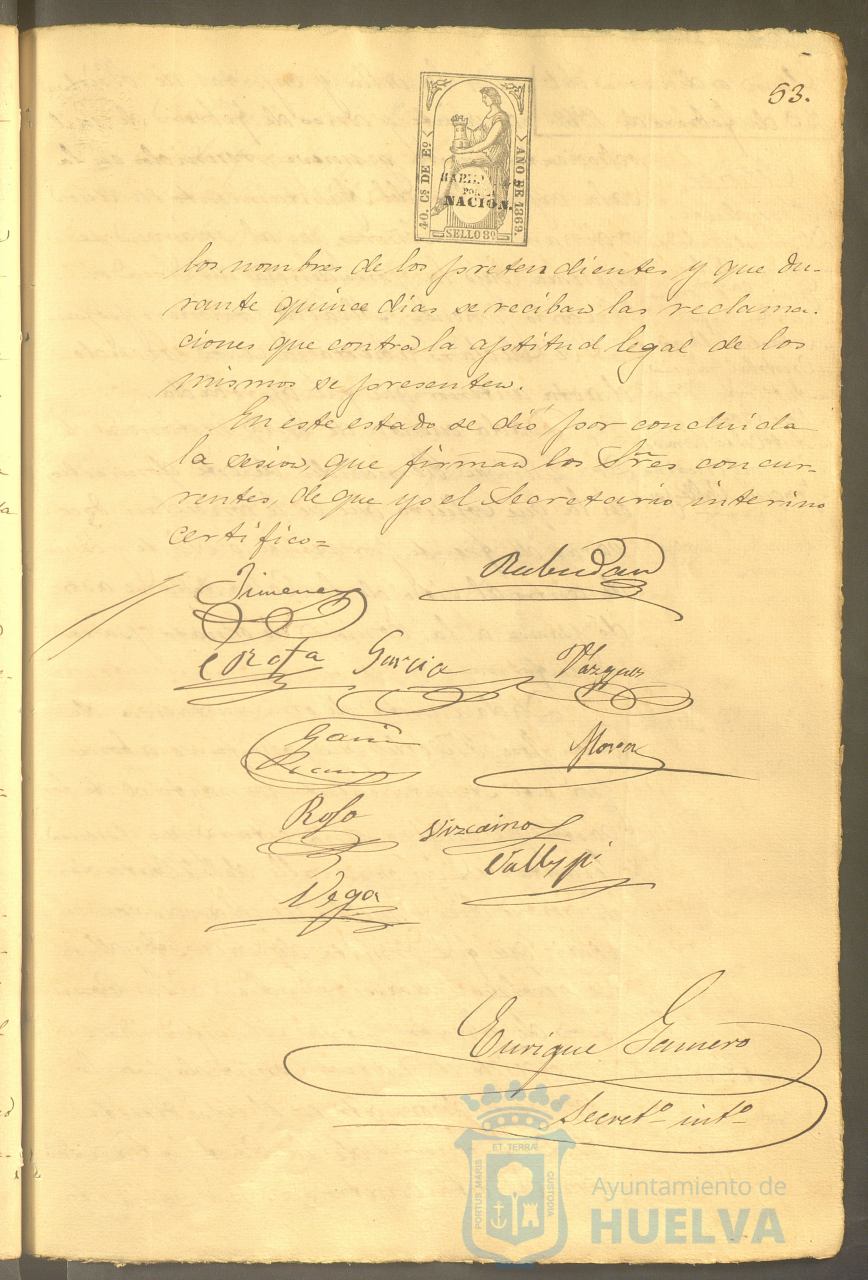 53.
40. Cs DE Eo
AÑO DE 1869.
POR LA
NACION.
SELLO 8o
los nombres de los pretendientes y que du-
rante quince dias se reciban las reclama-
ciones que contra la aptitud legal de los
mismos se presenten.
En este estado se dió por concluida
la sesion, que firman los Sres concur-
rentes, de que yo el Secretario interino
certifico=
Jimenez
Rofa Garcia Vazquez
Garcia
Mora
Rofo
Vizcaino
Vega
Enrique Gamero
Secreto into
PORTUS MARIS
ET TERRÆ
CUSTODIA
Ayuntamiento de
HUELVA